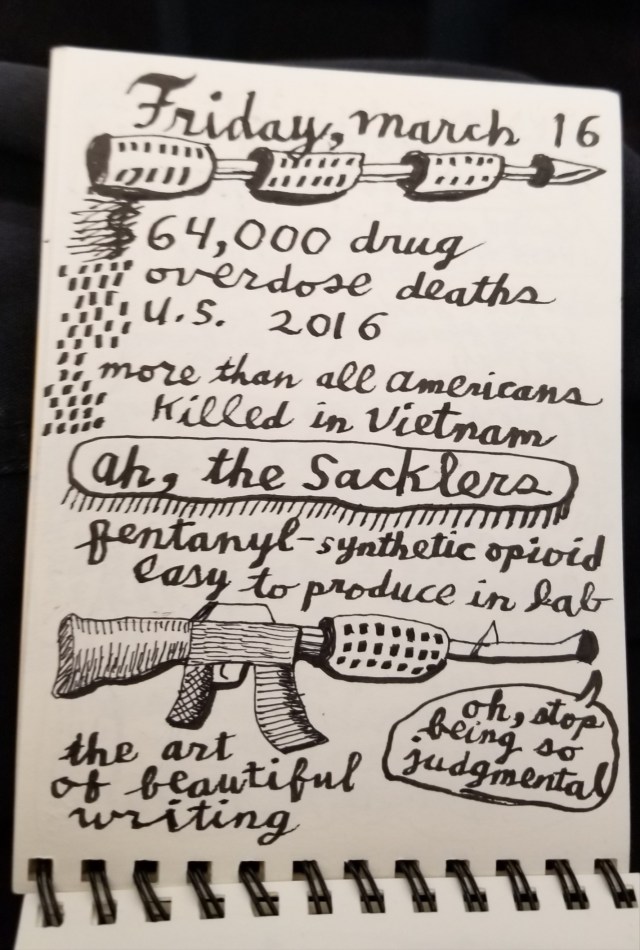 Friday, march 16
64,000 drug
overdose deaths
U.S. 2016
more than all americans
Killed in Vietnam
ah, the Sacklers
fentanyl-synthetic opioid
easy to produce in lab
oh, stop
being so
judgmental
the art
of beautiful
writing